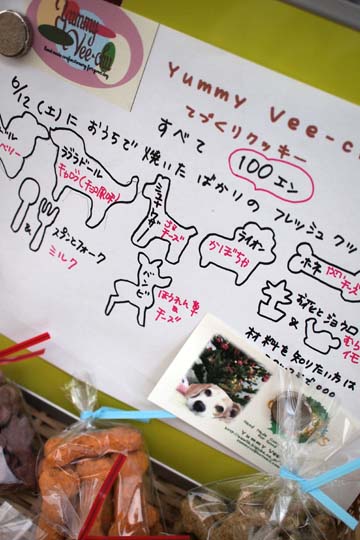 Yummy
Vee-cu
Yummy Vee-c
てづくりクッキー
すべて
100エン
6/12(土)に おうちで 焼いた ばかりの フレッシュ クッ
ラブラドール
キャロブ(チョコ風味)
ベリー
スプーンとフォーク
&
ミルク
チーズ
ライオン
かぼちゃ
ホネ
バンビ
ほうれん草
&
チーズ
&
むら
イモ
材料を知りたい方は